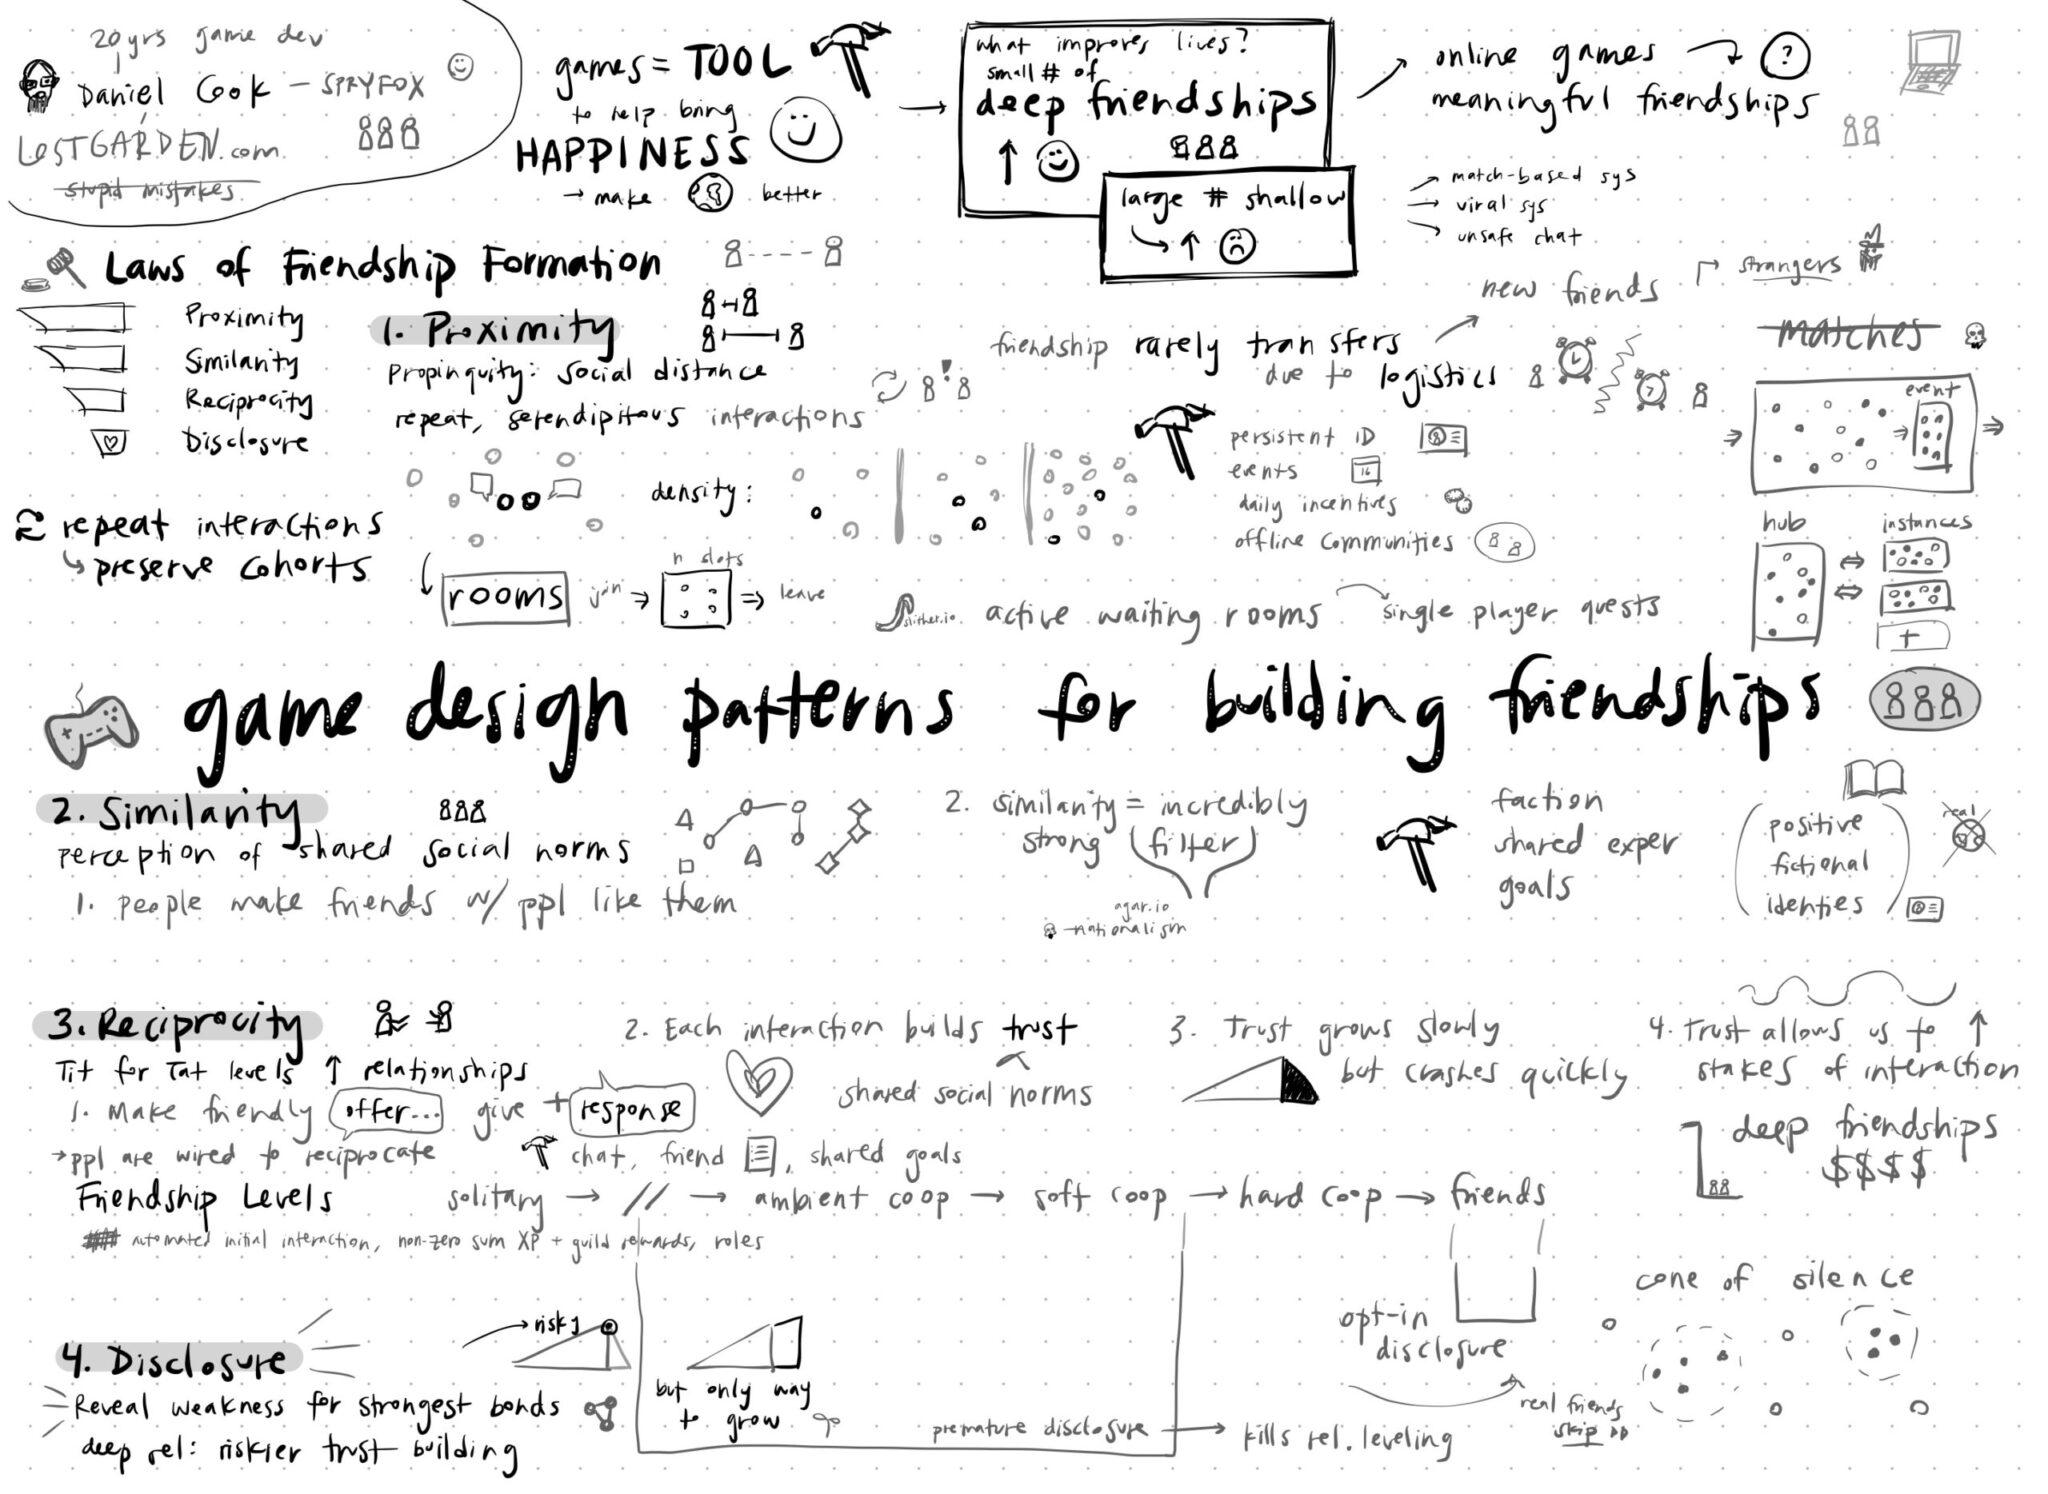 20yrs game dev
Daniel Cook – SPRYFOX
LOSTGARDEN.com
stupid mistakes
games = TOOL
to help bring
HAPPINESS
→ make better
what improves lives?
small # of
deep friendships
↑
large # shallow
↑
online games → ?
meaningful friendships
match-based sys
viral sys
unsafe chat
Laws of Friendship Formation
Proximity
Similarity
Reciprocity
Disclosure
repeat interactions
preserve cohorts
1. Proximity
Propinquity: social distance
repeat, serendipitous interactions
density:
rooms
join ⇒
n slots
⇒ leave
friendship rarely transfers
due to logistics
new friends
strangers
persistent ID
events
16
daily incentives
offline communities
matches
event
hub
instances
+
slither.io
active waiting rooms
single player quests
game design patterns for building friendships
2. Similarity
perception of shared social norms
1. people make friends w/ ppl like them
2. similarity = incredibly
strong (filter)
agar.io
→nationalism
faction
shared exper
goals
positive
fictional
identies
real
3. Reciprocity
Tit for Tat levels ↑ relationships
1. Make friendly offer... give + response
→ppl are wired to reciprocate
chat, friend , shared goals
2. Each interaction builds trust
shared social norms
3. Trust grows slowly
but crashes quickly
4. Trust allows us to ↑
stakes of interaction
deep friendships
$$$$
Friendship Levels
solitary → // → ambient coop → soft coop → hard coop → friends
automated initial interaction, non-zero sum XP + guild rewards, roles
4. Disclosure
Reveal weakness for strongest bonds
deep rel: riskier trust building
risky
but only way
to grow
premature disclosure → kills rel. leveling
opt-in
disclosure
real friends
skip
cone of silence